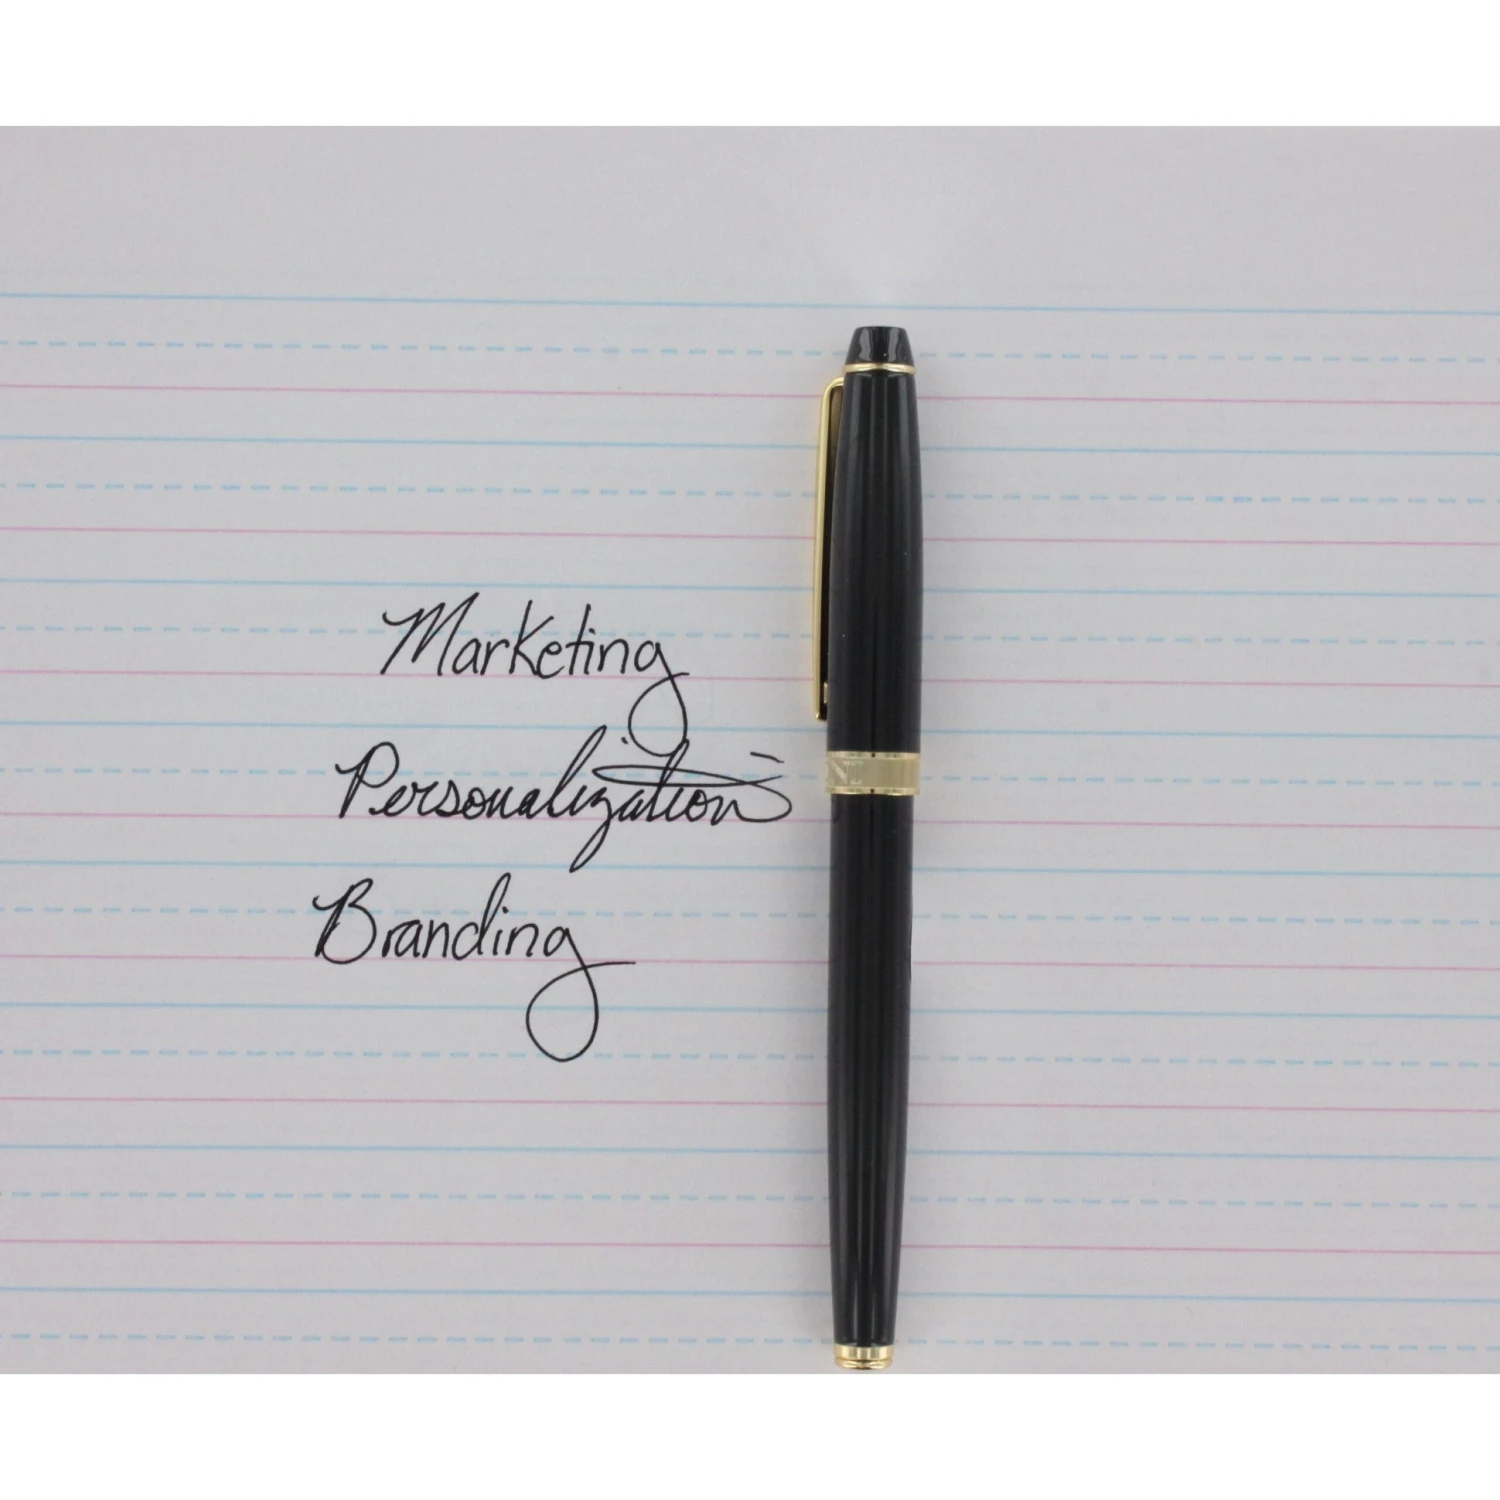 Marketing
Personalization
Branding